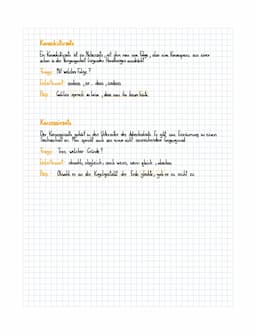 Konsekutivsatz
Ein Konsekutivsatz ist ein Nebensatz, mit dem man eine Folge, oder eine Konsequenz aus einer
schon in der Vergangenheit liegenden Handlungen ausdrückt.
Frage: Mit welcher Folge?
Einleitewort: sodass, so...dass, sodass
Bsp.: Galileo sprach so leise, dass man ihn kaum hörte.
Konzessivsatz
Der Konzessivsatz gehört zu den Unterarten des Adverbialsatz. Es gibt eine Einräumung zu einem
Sachverhalt an. Man spricht auch von einem nicht ausreichenden Gegengrund.
Frage: Trotz welcher Gründe?
Einleitewort: obwohl, obgleich, auch wenn, wenn gleich, obschon
Bsp.: Obwohl er an die Kugelgestalt der Erde glaubte, gab er es nicht zu.